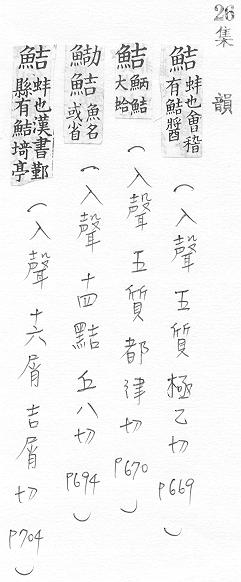 26
集韻
鮚 蚌也會稽有鮚醬 (入聲 五質 極乙切 P669)
鮚 鮞鮚大蛤 (入聲 五質 都律切 P670)
鮚 魚名或省 (入聲 十四黠 丘八切 P694)
鮚 蚌也漢書鄞縣有鮚埼亭 (入聲 十六屑 吉屑切 P704)